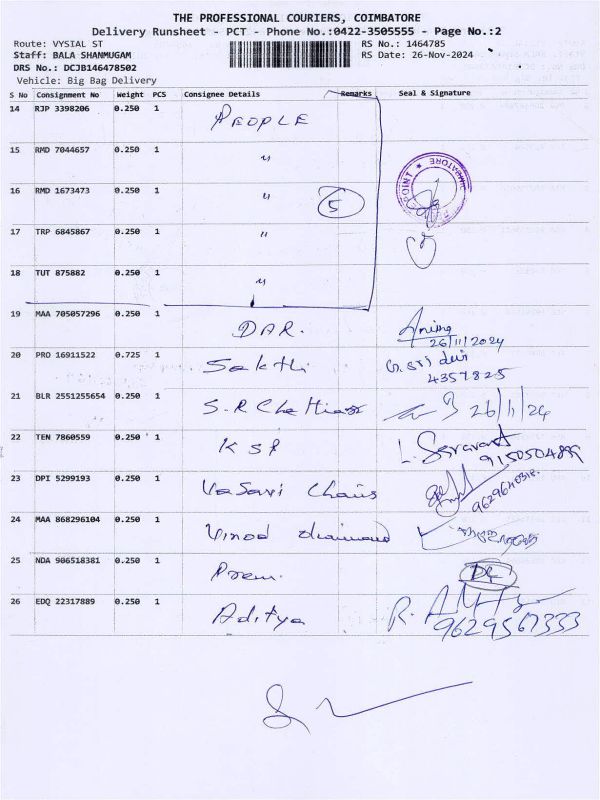 THE PROFESSIONAL COURIERS, COIMBATORE
Delivery Runsheet - PCT - Phone No.:0422-3505555 - Page No.:2
Route: VYSIAL ST RS No.: 1464785
Staff: BALA SHANMUGAM RS Date: 26-Nov-2024
DRS No.: DCJB146478502
Vehicle: Big Bag Delivery
S No Consignment No Weight PCS Consignee Details Remarks Seal & Signature
14 RJP 3398206 0.250 1 PEOPLE
15 RMD 7044657 0.250 1 "
16 RMD 1673473 0.250 1 " 5
17 TRP 6845867 0.250 1 "
18 TUT 875882 0.250 1 "
19 MAA 705057296 0.250 1 DAR.
26/11/2024
20 PRO 16911522 0.725 1 Sakthi G. Sri devi
4357825
21 BLR 2551255654 0.250 1 S.R Chettiar 26/11/24
22 TEN 7860559 0.250 1 KSP L. Saravanan
23 DPI 5299193 0.250 1 Vasavi Chains
24 MAA 868296104 0.250 1 Vinod diamond
25 NDA 906518381 0.250 1 Prem.
26 EDQ 22317889 0.250 1 Aditya
9629567333